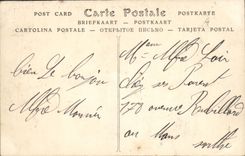 POST CARD Carte Postale POSTKARTE
BRIEFKAART — POSTKAART
CARTOLINA POSTALE — ОТКРЫТОЕ ПИСЬМО — TARJETA POSTAL
Mme Alfred
bien le bonjour
chez ses Parent
Alfred Monnier
170 avenue
au Mans
Sarthe